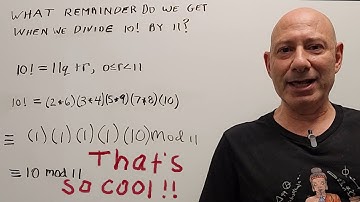 WHAT REMAINDER DO WE GET
WHEN WE DIVIDE 10! BY 11?
10! = 11q + r, 0≤r<11
10! = (2*6)(3*4)(5*9)(7*8)(10)
≡ (1)(1)(1)(1)(10) mod 11
≡ 10 mod 11
That's
SO COOL!!